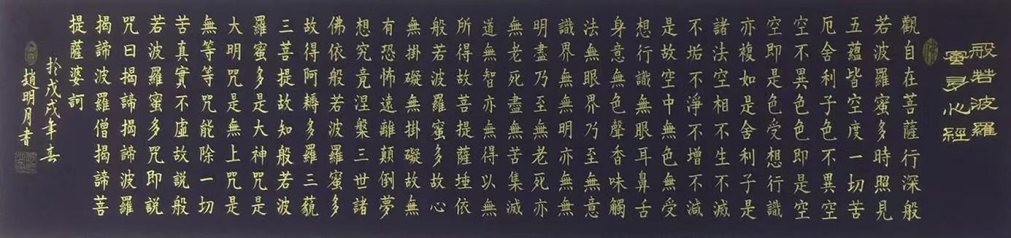 般若波羅
蜜多心經
觀自在菩薩行深般
若波羅蜜多時照見
五蘊皆空度一切苦
厄舍利子色不異空
空不異色色即是空
空即是色受想行識
亦複如是舍利子是
諸法空相不生不滅
不垢不淨不增不減
是故空中無色無受
想行識無眼耳鼻舌
身意無色聲香味觸
法無眼界乃至無意
識界無無明亦無無
明盡乃至無老死亦
無老死盡無苦集滅
道無智亦無得以無
所得故菩提薩埵依
般若波羅蜜多故心
無掛礙無掛礙故無
有恐怖遠離顛倒夢
想究竟涅槃三世諸
佛依般若波羅蜜多
故得阿耨多羅三藐
三菩提故知般若波
羅蜜多是大神咒是
大明咒是無上咒是
無等等咒能除一切
苦真實不虛故說般
若波羅蜜多咒即說
咒曰揭諦揭諦波羅
揭諦波羅僧揭諦菩
提薩婆訶
於戊戌年喜
趙明月書